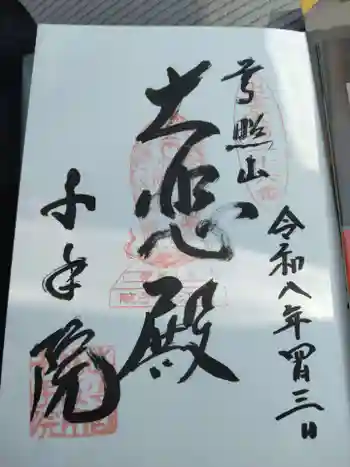 照山
令和八年四月三日
大悲殿
千手院